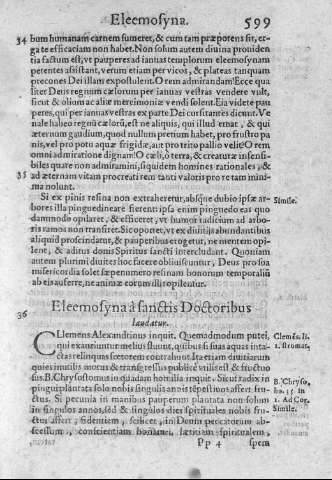 Eleemosyna. 599
34 bum humanam carnem sumeret, & cum tam præpotens sit, er-
ga te efficaciam non habet. Non solum autem diuina prouiden
tia factum est, vt pauperes ad ianuas templorum eleemosynam
petentes assistant, verum etiam per vicos, & plateas tanquam
præcones Dei illam expostulent. O rem admirandam! Ecce qua
liter Deus regnum cælorum per ianuas vestras vendere vult,
sicut & olium ac aliæ mercimoniæ vendi solent. Eia videte pau
peres, qui per ianuas vestras ex parte Dei cursitantes dicunt. Ve
nale habeo regnũ cælorũ, est ne aliquis, qui illud emat, & qui
æternum gaudium, quod nullum pretium habet, pro frustro pa
nis, vel pro potu aquæ frigidæ, aut pro trito pallio velit? O rem
omni admiratione dignam! O cæli, ò terra, & creaturæ insensi-
biles quare non admiramini, siquidem homines rationales, &
35 ad æternam vitam procreati rem tanti valoris pro re tam mini-
ma nolunt.
Si ex pinis resina non extraheretur, absque dubio ipsæ ar- Simile.
bores illa pinguedine arefierent: ipsa enim pinguedo eas quo
dammodo opilaret, & efficeret, vt humor radicum ad arbo-
ris ramos non transiret. Sic oportet, vt ex diuitijs abundantibus
aliquid proscindatur, & pauperibus erogetur, ne mentem opi-
lent, & aditus donis Spiritus sancti intercludant. Quoniam
autem plurimi diuites hoc facere obliuiscuntur, Deus pro sua
misericordia solet sæpenumero resinam bonorum temporaliũ
ab eis auferre, ne animæ eorum illis opilentur.
36 Eleemosyna à sanctis Doctoribus
laudatur.
CLemens Alexandrinus inquit. Quemodmodum putei, Clemẽs. li.
qui exauriuntur melius fluunt, quibus si suas aquas inta- 1. stromat.
ctas relinquas fœtorem contrahunt. Ita etiam diuitiarum
quies inutilis motus & transgressus publicè vtilis est & fructuo
sus. B. Chrysostomus in quadam homilia inquit. Sicut radix in B. Chryso.
pingui partu solo nobis singulis annis tẽpestiuos affert fru- ho. 15 in
ctus. Si pecunia in manibus pauperum plantata non solum 1. Ad Cor.
in singulos annos, sed & singulos dies spirituales nobis fru- Simile.
ctus affert, fidentiem, scilicet, in Deum peccatorum ab-
scessum, conscientiam bonam, lætitiam spiritualem,
Pp 4 spem